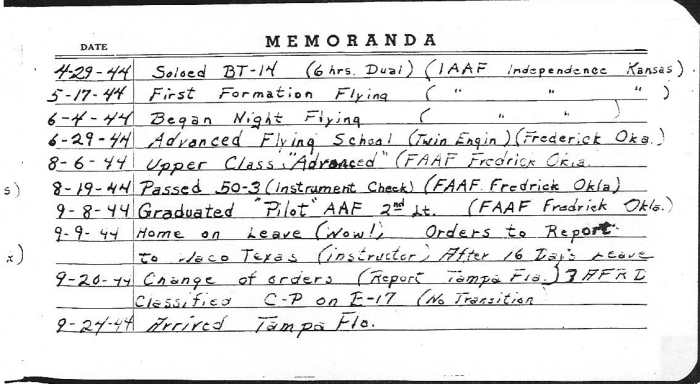 MEMORANDA
DATE
4-29-44 Soloed BT-14 (6 hrs. Dual) (IAAF Independence Kansas)
5-17-44 First Formation Flying ( " " " )
6-4-44 Began Night Flying ( " " )
6-29-44 Advanced Flying School (Twin Engin) (Frederick Oka.)
8-6-44 Upper Class "Advanced" (FAAF Fredrick Okla.
s) 8-19-44 Passed 50-3 (instrument Check) (FAAF Fredrick Okla)
9-8-44 Graduated "Pilot" AAF 2nd Lt. (FAAF Fredrick Okla.)
9-9-44 Home on Leave (Wow!) Orders to Report
x) to Waco Texas (instructor) After 16 Days Leave
9-20-44 Change of orders (Report Tampa Fla.) 3 AFRD
Classified C-P on B-17 (No Transition
9-24-44 Arrived Tampa Flo.